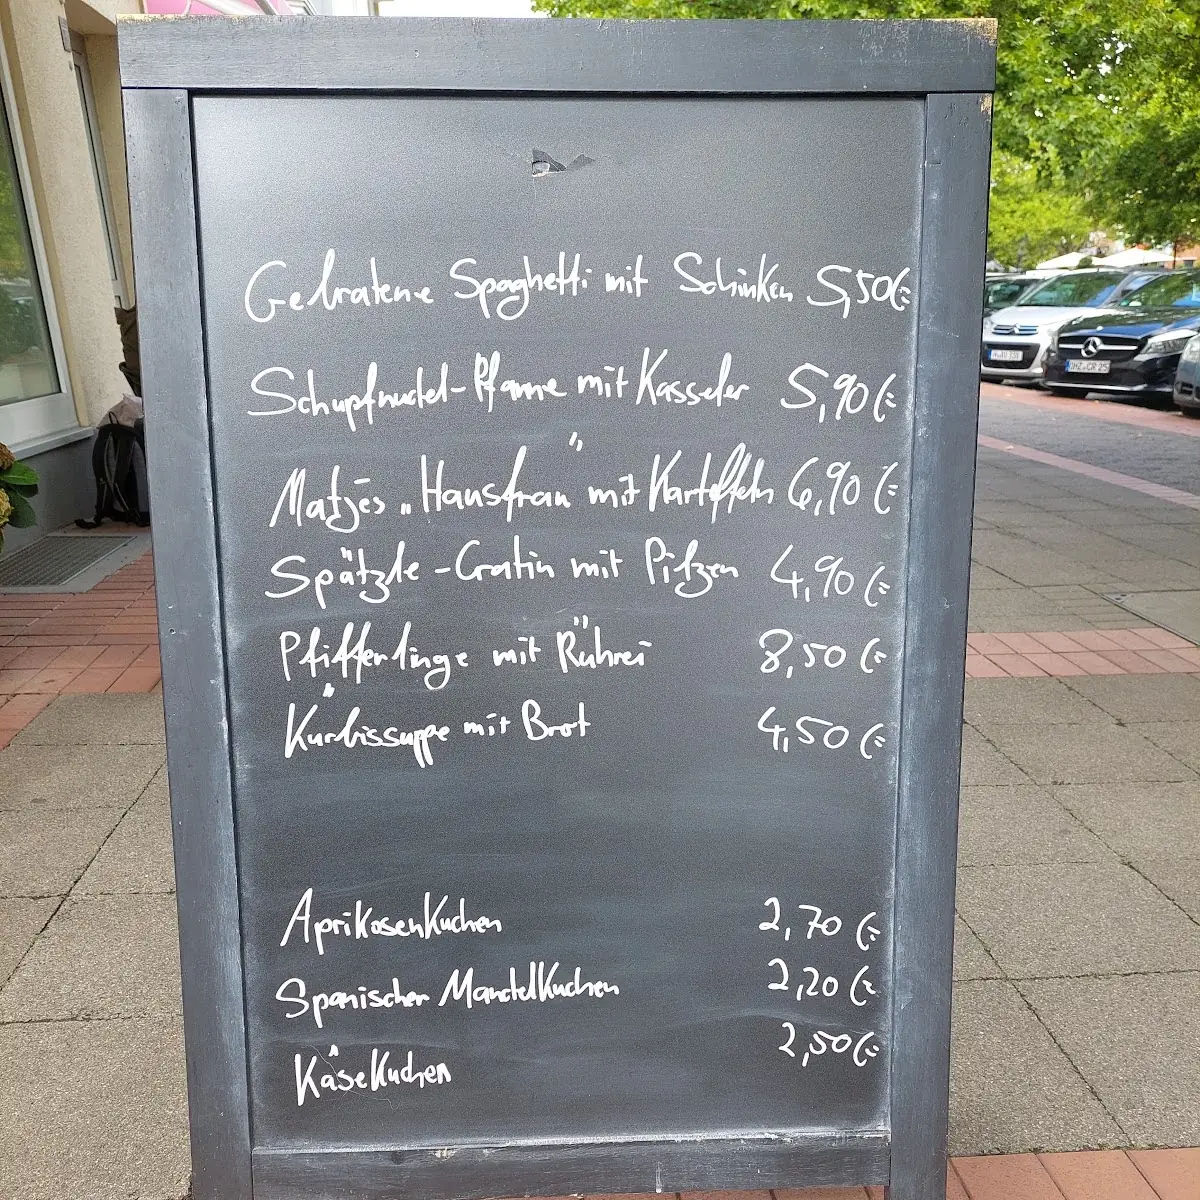 Gebratene Spaghetti mit Schinken 5,50€
Schupfnudel-Pfanne mit Kasseler 5,90€
Matjes „Hausfrau" mit Kartoffeln 6,90€
Spätzle-Gratin mit Pilzen 4,90€
Pfifferlinge mit Rührei 8,50€
Kürbissuppe mit Brot 4,50€
Aprikosenkuchen 2,70€
Spanischer Mandelkuchen 2,20€
Käsekuchen 2,50€
OHZ CR 25